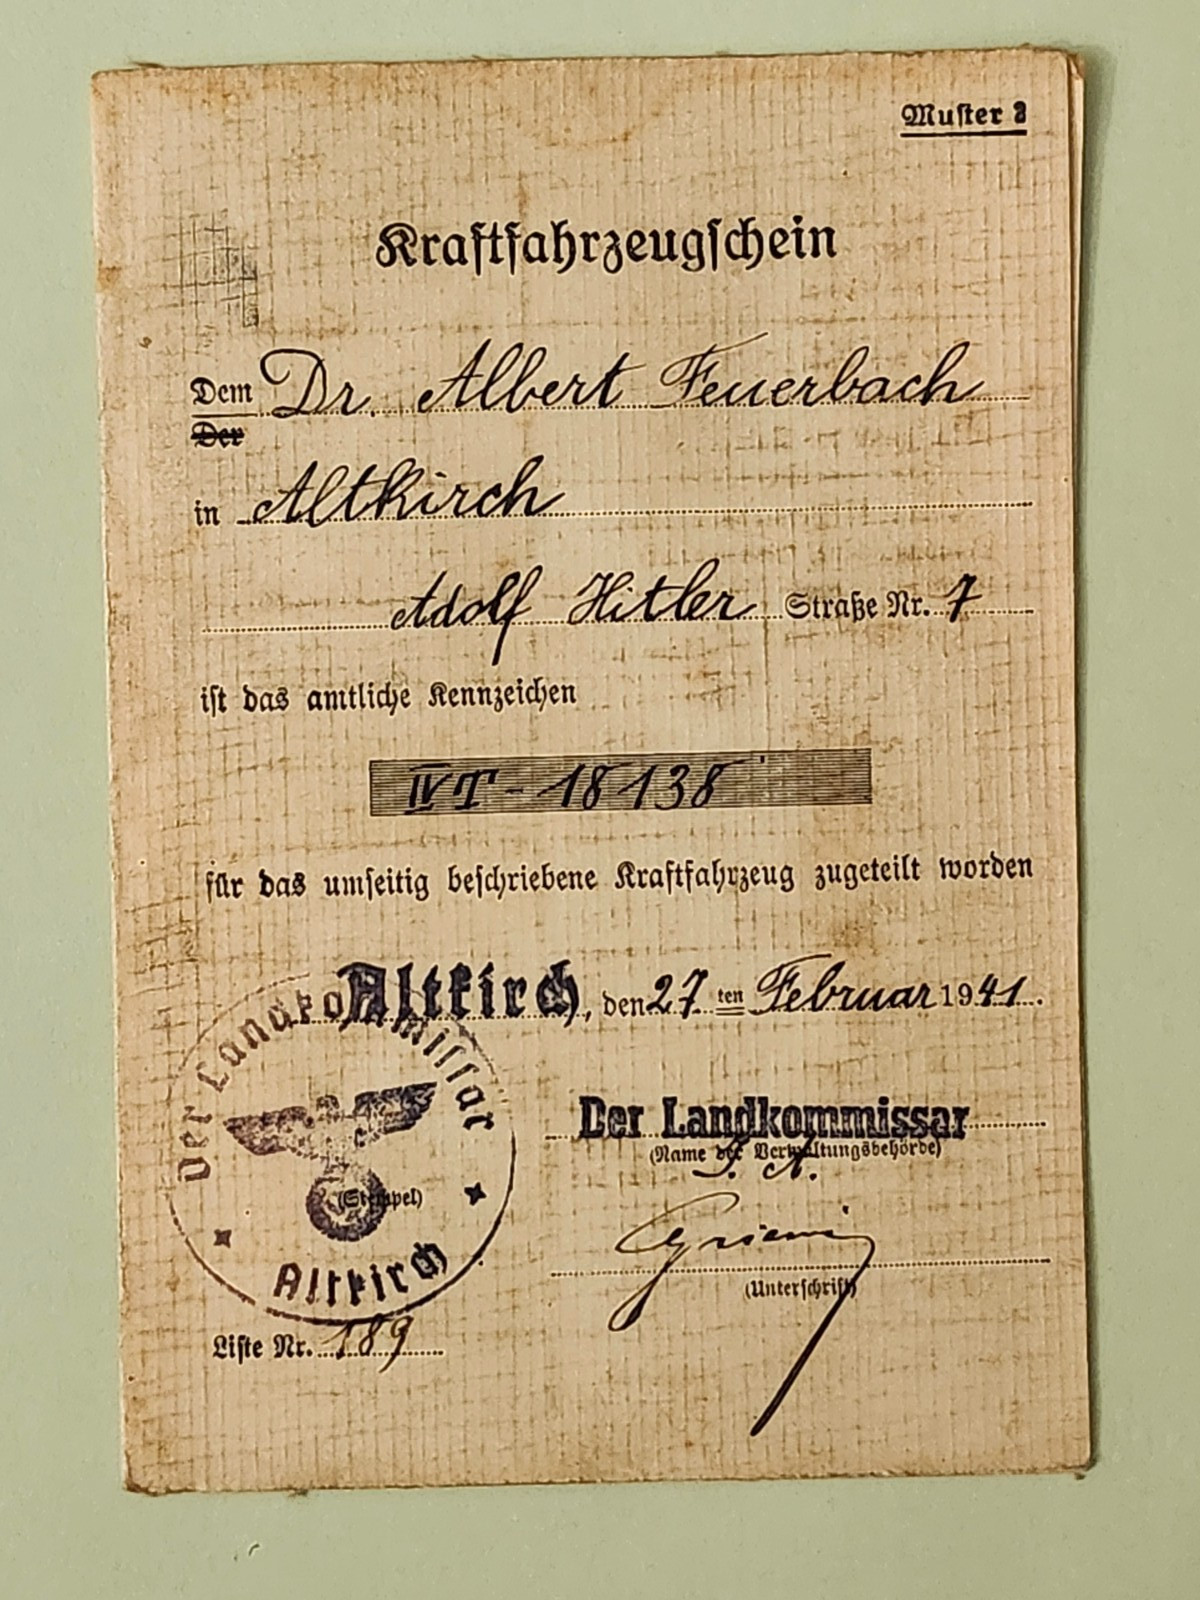 Muster 3
Kraftfahrzeugschein
Dem Dr. Albert Feuerbach
Der
in Altkirch
Adolf Hitler Straße Nr. 7
ist das amtliche Kennzeichen
IVT - 18138
für das umseitig beschriebene Kraftfahrzeug zugeteilt worden
Altkirch, den 27.ten Februar 1941.
Der Landkommissar
Der Landkommissar
(Name der Verwaltungsbehörde)
J. A.
(Stempel)
Altkirch
(Unterschrift)
Liste Nr. 189